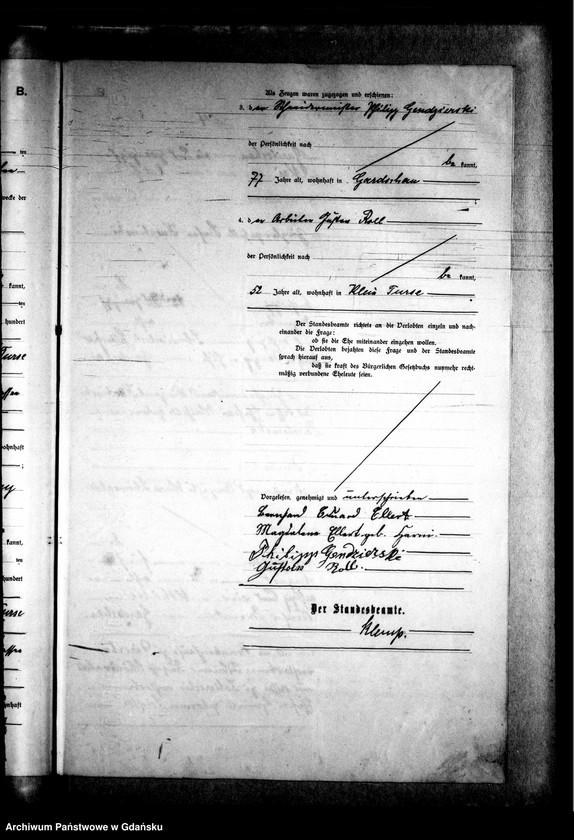 B.
Als Zeugen waren zugezogen und erschienen:
3. der Schneidermeister Philipp Gendzierski
der Persönlichkeit nach
be kannt,
77 Jahre alt, wohnhaft in Gardschau
4. der Arbeiter Gustav Roll
der Persönlichkeit nach
be kannt,
52 Jahre alt, wohnhaft in Klein Turse
Der Standesbeamte richtete an die Verlobten einzeln und nach-
einander die Frage:
ob sie die Ehe miteinander eingehen wollen.
Die Verlobten bejahten diese Frage und der Standesbeamte
sprach hierauf aus,
daß sie kraft des Bürgerlichen Gesetzbuchs nunmehr recht-
mäßig verbundene Eheleute seien.
Vorgelesen, genehmigt und unterschrieben
Bernhard Eduard Ellert
Magdalena Ellert geb.
Philipp Gendzierski
Gustav Roll.
Der Standesbeamte.
Archiwum Państwowe w Gdańsku